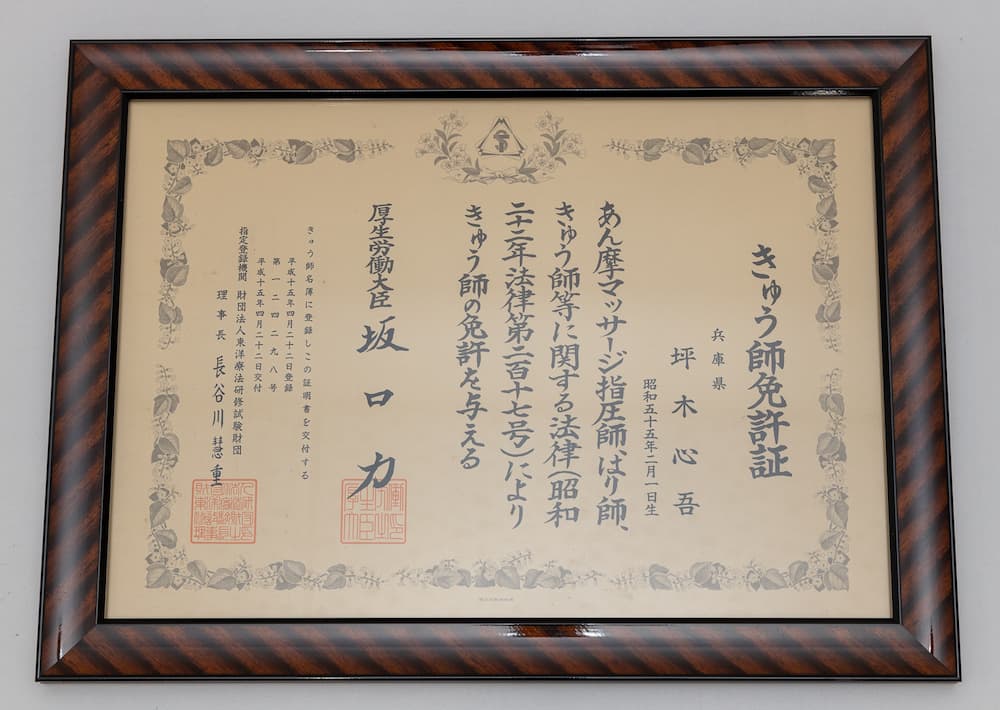 きゅう師免許証
兵庫県
坪木心吾
昭和五十五年二月一日生
あん摩マッサージ指圧師、はり師、
きゅう師等に関する法律(昭和
二十二年法律第二百十七号)により
きゅう師の免許を与える
厚生労働大臣 坂口力
きゅう師名簿に登録しこの証明書を交付する
平成十五年四月二十二日登録
第一二四二九八号
平成十五年四月二十二日交付
指定登録機関 財団法人東洋療法研修試験財団
理事長 長谷川慧重